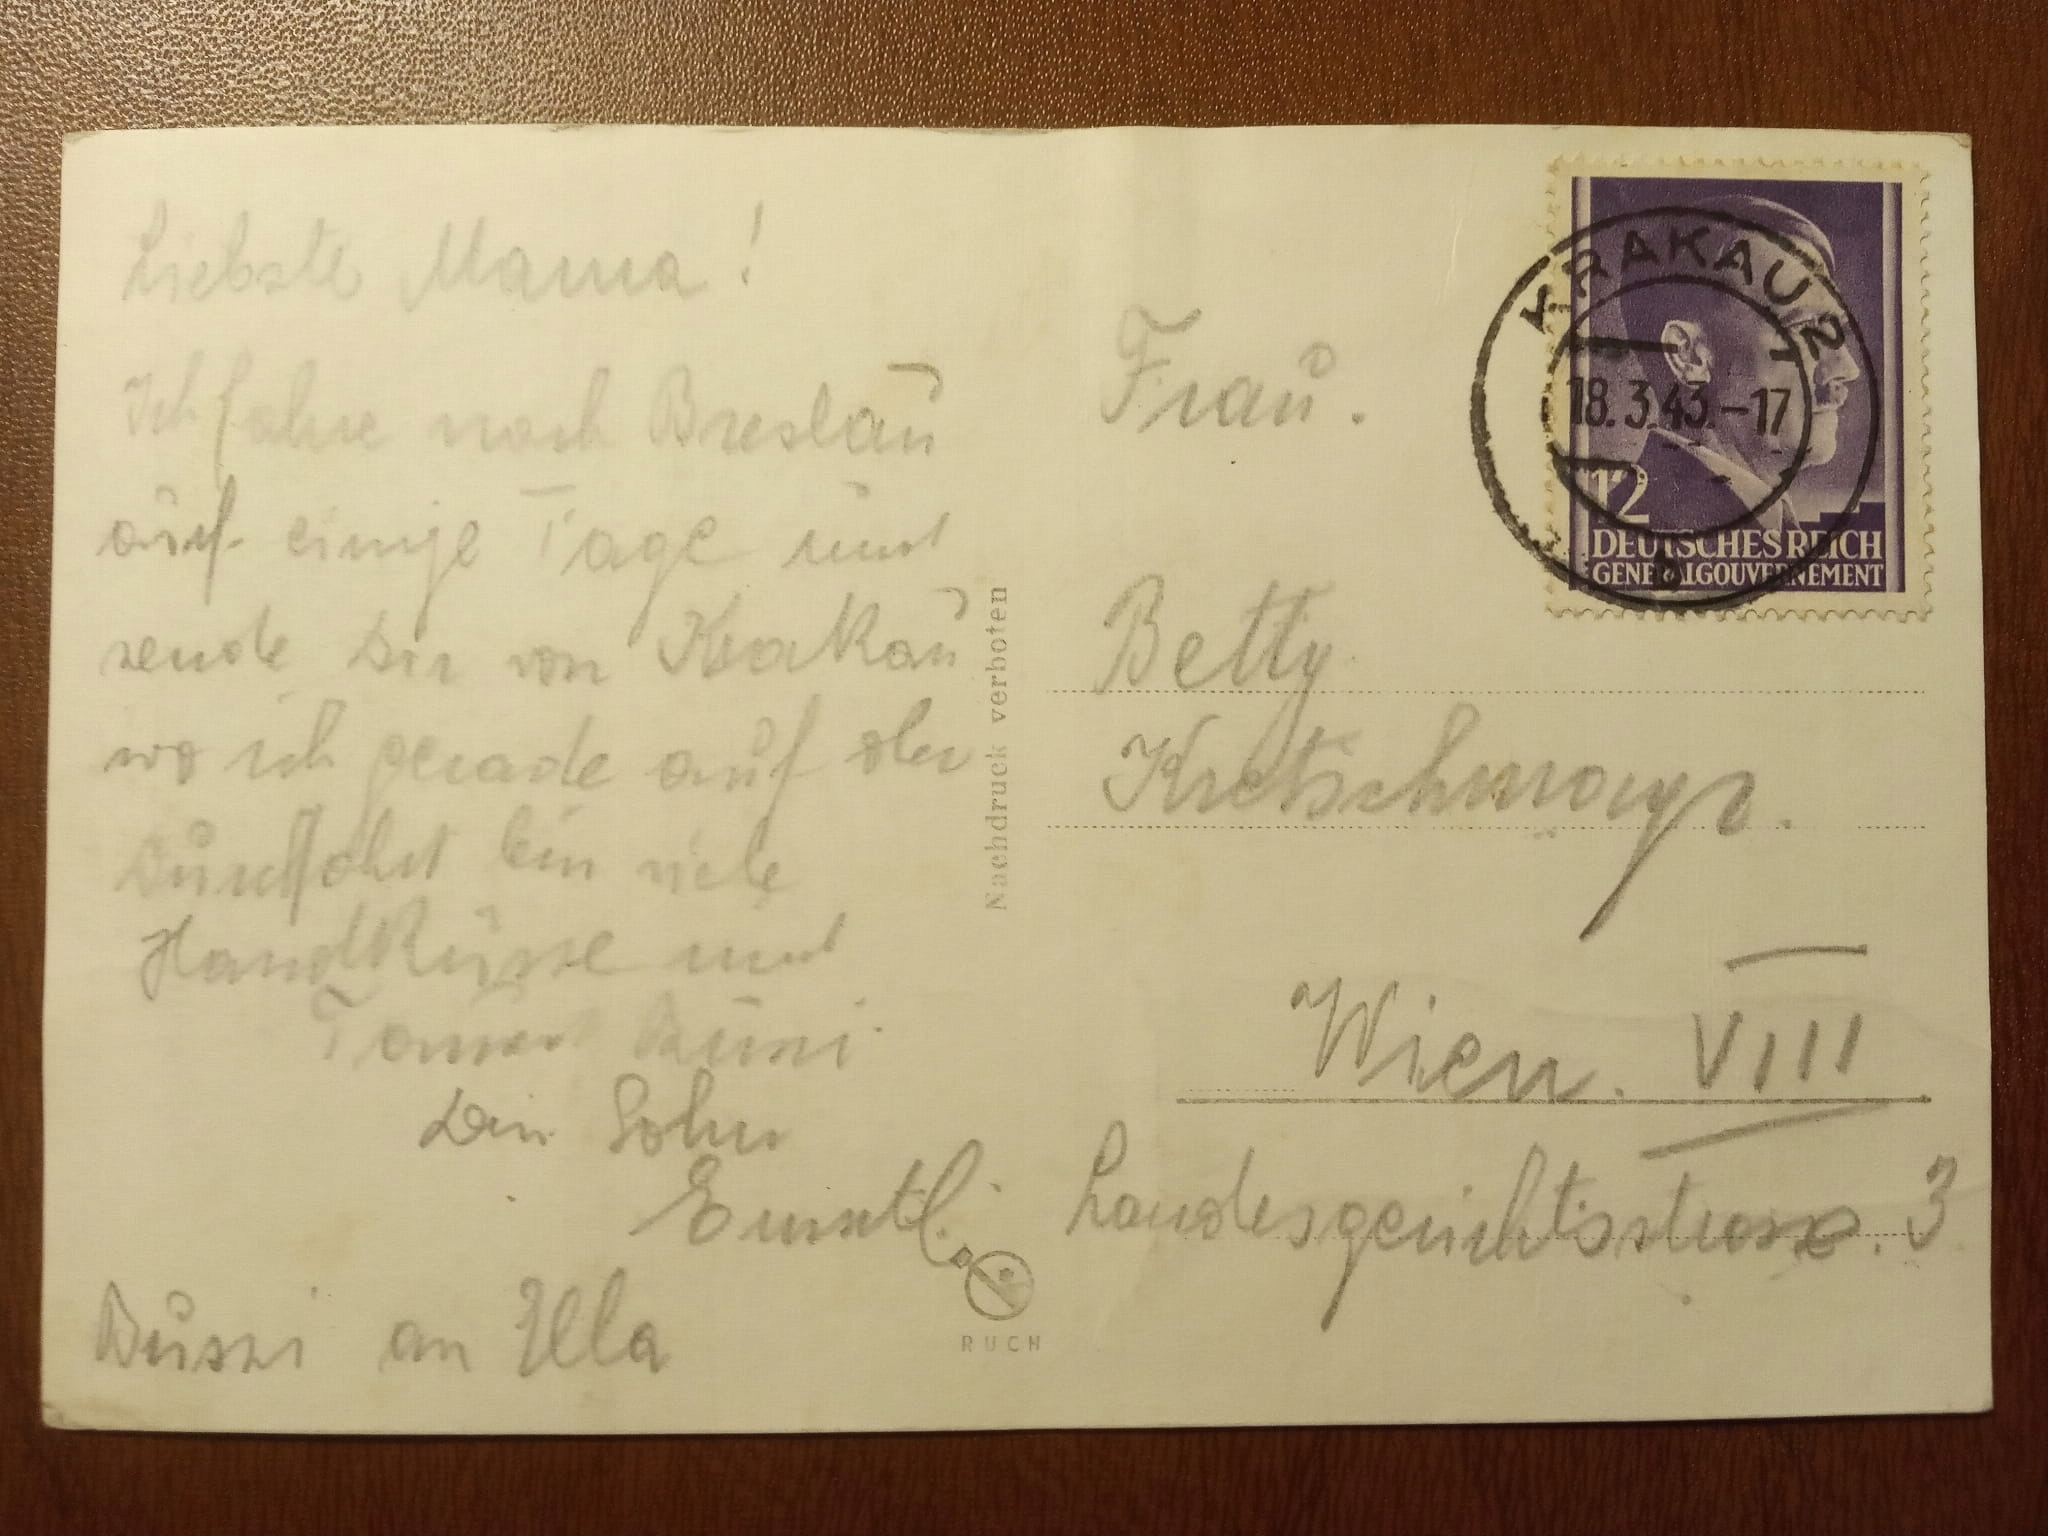 Liebste Mama!
Ich fahre nach Breslau
auf einige Tage und
sende Dir von Krakau
wo ich gerade auf der
Durchfahrt bin viele
Handküsse und
Tausend Bussi.
Dein Sohn
Ernstl.
Bussi an Illa
Nachdruck verboten
RUCH
KRAKAU 2
18.3.43.-17
12
DEUTSCHES REICH
GENERALGOUVERNEMENT
Frau.
Betty
Kretschmayr.
Wien. VIII
Landesgerichtsstrasse. 3